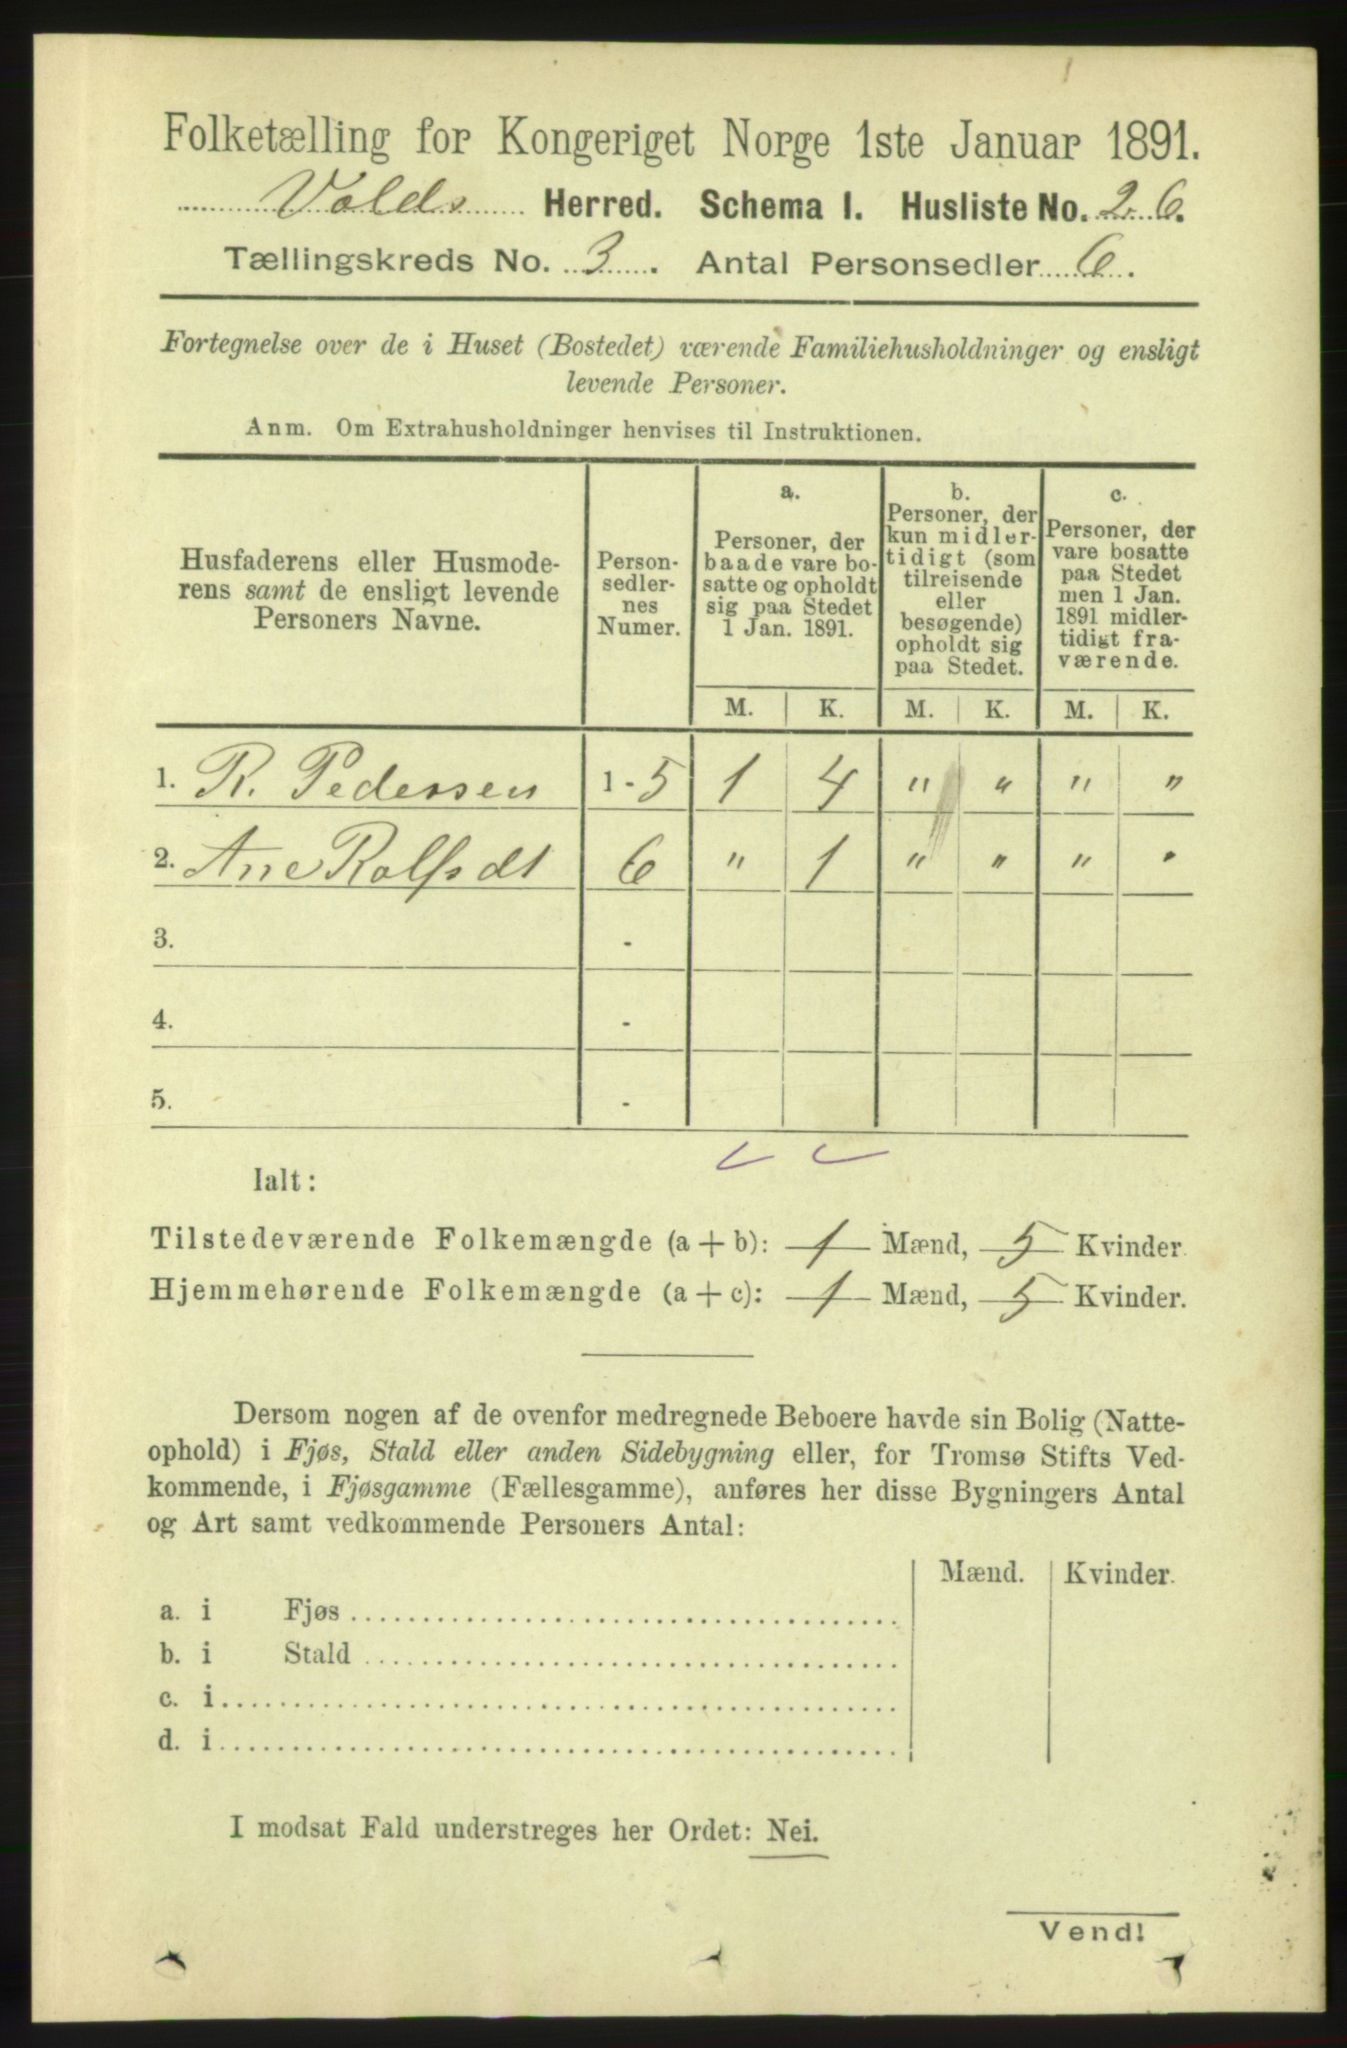 Folketælling for Kongeriget Norge 1ste Januar 1891.
Volds Herred. Schema I. Husliste No. 26.
Tællingskreds No. 3. Antal Personsedler 6.
Fortegnelse over de i Huset (Bostedet) værende Familiehusholdninger og ensligt
levende Personer.
Anm. Om Extrahusholdninger henvises til Instruktionen.
Husfaderens eller Husmode-
rens samt de ensligt levende
Personers Navne.
Person-
sedler-
nes
Numer.
a.
Personer, der
baade vare bo-
satte og opholdt
sig paa Stedet
1 Jan. 1891.
b.
Personer, der
kun midler-
tidigt (som
tilreisende
eller
besøgende)
opholdt sig
paa Stedet.
c.
Personer, der
vare bosatte
paa Stedet
men 1 Jan.
1891 midler-
tidigt fra-
værende.
M. K. M. K. M. K.
1. R. Pedersen 1-5 1 4 " " " "
2. Ane Rolfsdt 6 " 1 " " " "
3. -
4. -
5. -
Ialt:
Tilstedeværende Folkemængde (a + b): 1 Mænd, 5 Kvinder.
Hjemmehørende Folkemængde (a + c): 1 Mænd, 5 Kvinder.
Dersom nogen af de ovenfor medregnede Beboere havde sin Bolig (Natte-
ophold) i Fjøs, Stald eller anden Sidebygning eller, for Tromsø Stifts Ved-
kommende, i Fjøsgamme (Fællesgamme), anføres her disse Bygningers Antal
og Art samt vedkommende Personers Antal:
Mænd. Kvinder.
a. i Fjøs
b. i Stald
c. i
d. i
I modsat Fald understreges her Ordet: Nei.
Vend!